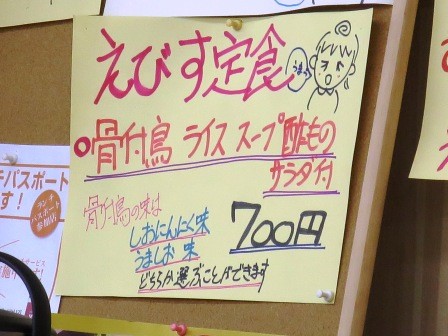 えびす定食
うまっ
○骨付鳥 ライス スープ 酢もの
サラダ付
骨付鳥の味は
しおにんにく味
うましお味
どちらか選ぶことができます
700円
パスポート
す!
ランチ
パスポート
参加店